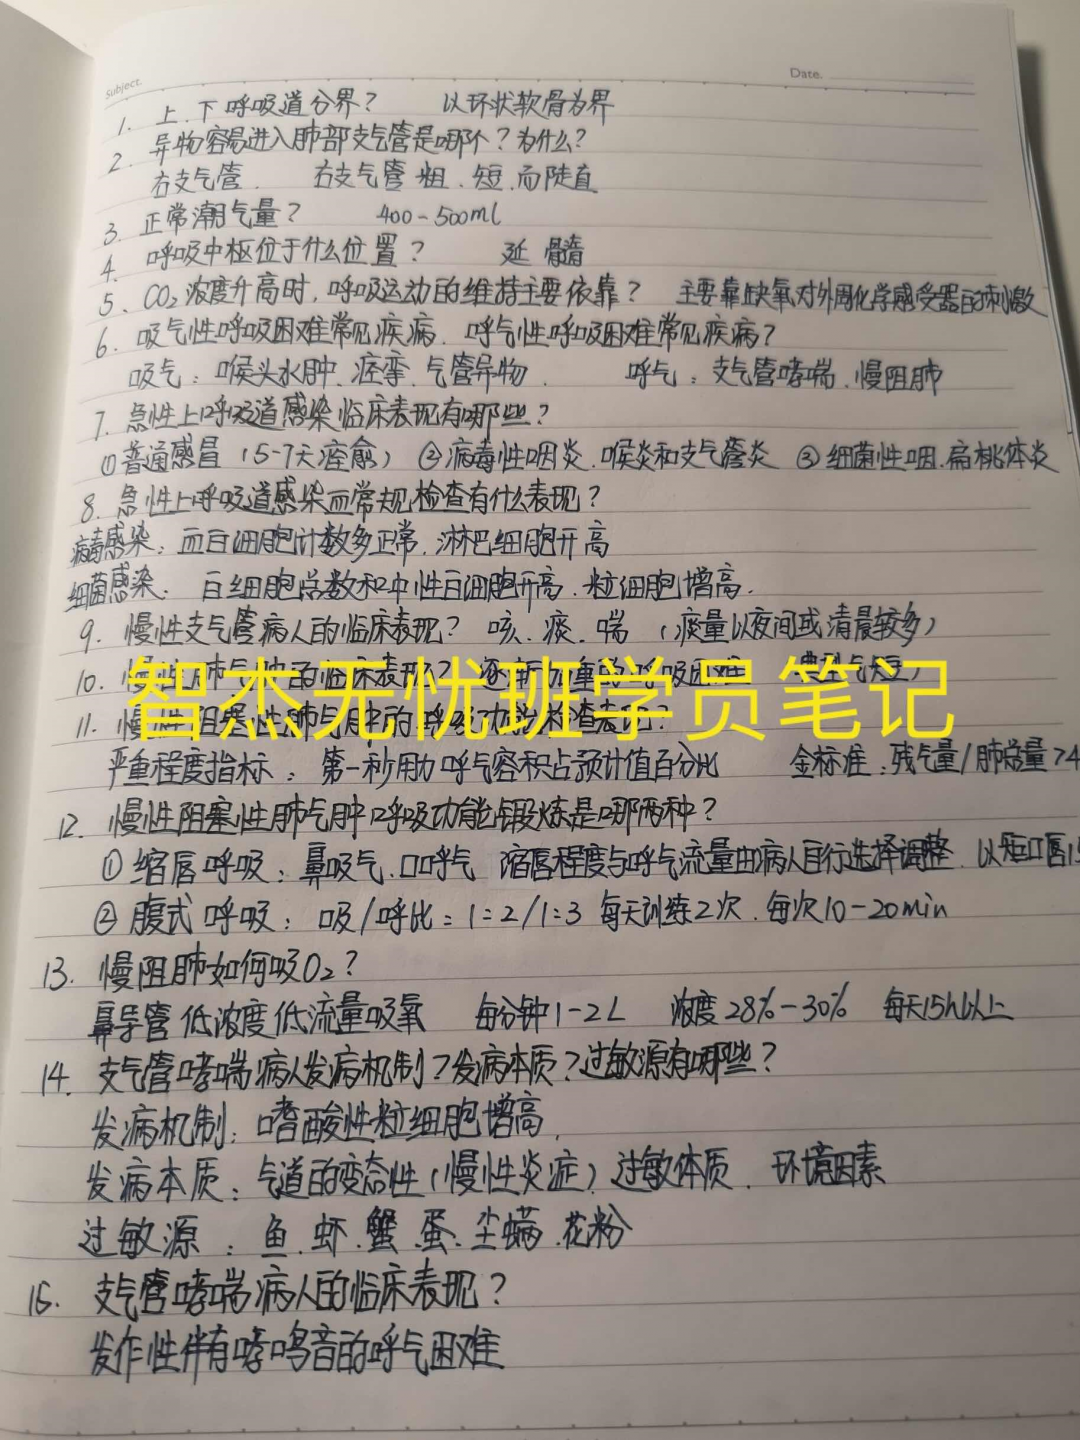 Subject.
Date.
1. 上、下呼吸道分界? 以环状软骨为界
2. 异物容易进入肺部支气管是哪个?为什么?
右支气管. 右支气管粗、短、而陡直
3. 正常潮气量? 400-500ml
4. 呼吸中枢位于什么位置? 延髓
5、CO₂浓度升高时,呼吸运动的维持主要依靠? 主要靠缺氧对外周化学感受器的刺激
6. 吸气性呼吸困难常见疾病、呼气性呼吸困难常见疾病?
吸气:喉头水肿、痉挛、气管异物. 呼气:支气管哮喘、慢阻肺
7. 急性上呼吸道感染临床表现有哪些?
①普通感冒(5-7天痊愈) ②病毒性咽炎、喉炎和支气管炎 ③细菌性咽、扁桃体炎
8. 急性上呼吸道感染血常规检查有什么表现?
病毒感染:血白细胞计数多正常、淋巴细胞升高
细菌感染:白细胞总数和中性白细胞升高、粒细胞增高.
9. 慢性支气管病人的临床表现? 咳、痰、喘 (痰量以夜间或清晨较多)
10. 慢性肺气肿的临床表现? 逐渐加重的呼吸困难 典型气短)
智杰无忧班学员笔记
11. 慢性阻塞性肺气肿的呼吸功能检查表现?
严重程度指标:第一秒用力呼气容积占预计值百分比 金标准:残气量/肺总量>4
12. 慢性阻塞性肺气肿呼吸功能锻炼是哪两种?
①缩唇呼吸:鼻吸气、口呼气 缩唇程度与呼气流量由病人自行选择调整、以距口唇15
②腹式呼吸:吸/呼比=1:2/1:3 每天训练2次、每次10-20min
13. 慢阻肺如何吸O₂?
鼻导管低浓度低流量吸氧 每分钟1-2L 浓度28%-30% 每天15h以上
14. 支气管哮喘病人发病机制?发病本质?过敏源有哪些?
发病机制:嗜酸性粒细胞增高.
发病本质:气道的变态性(慢性炎症)过敏体质、环境因素
过敏源:鱼、虾、蟹、蛋、尘螨、花粉
15. 支气管哮喘病人的临床表现?
发作性伴有哮鸣音的呼气困难